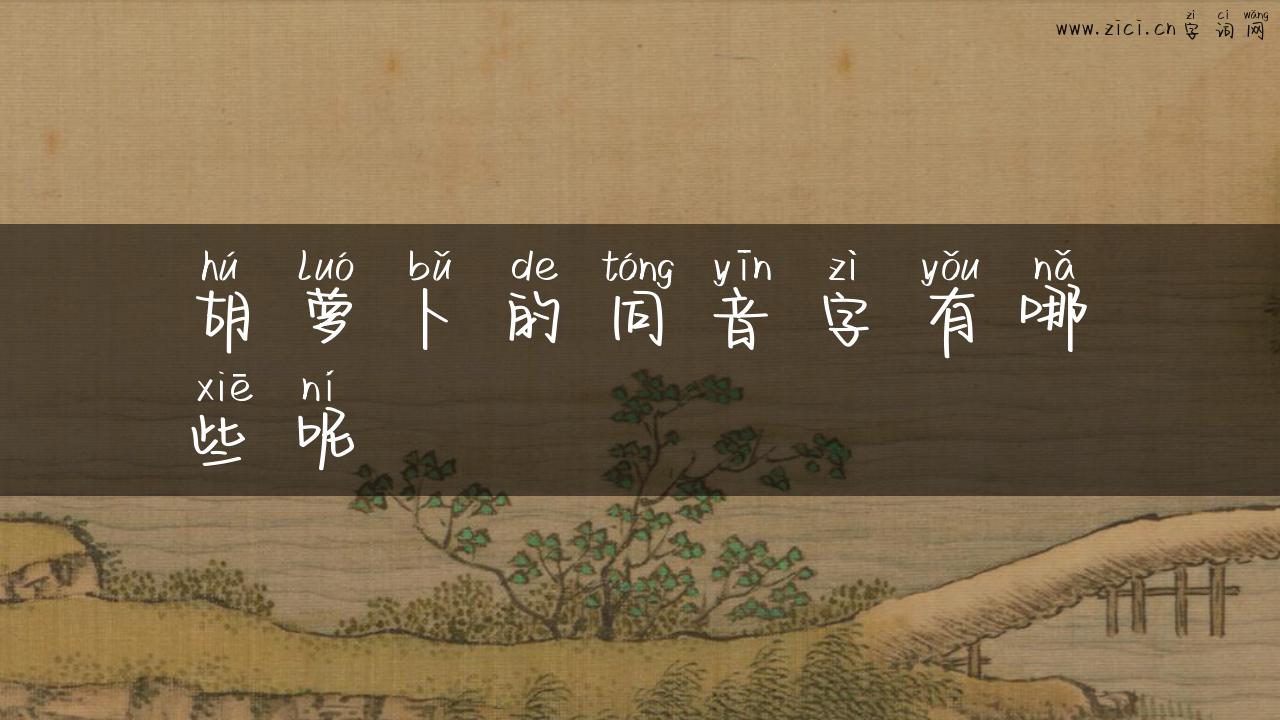 zì cí wǎng
www.zici.cn 字词网
hú luó bǔ de tóng yīn zì yǒu nǎ
胡萝卜的同音字有哪
xiē ní
些呢